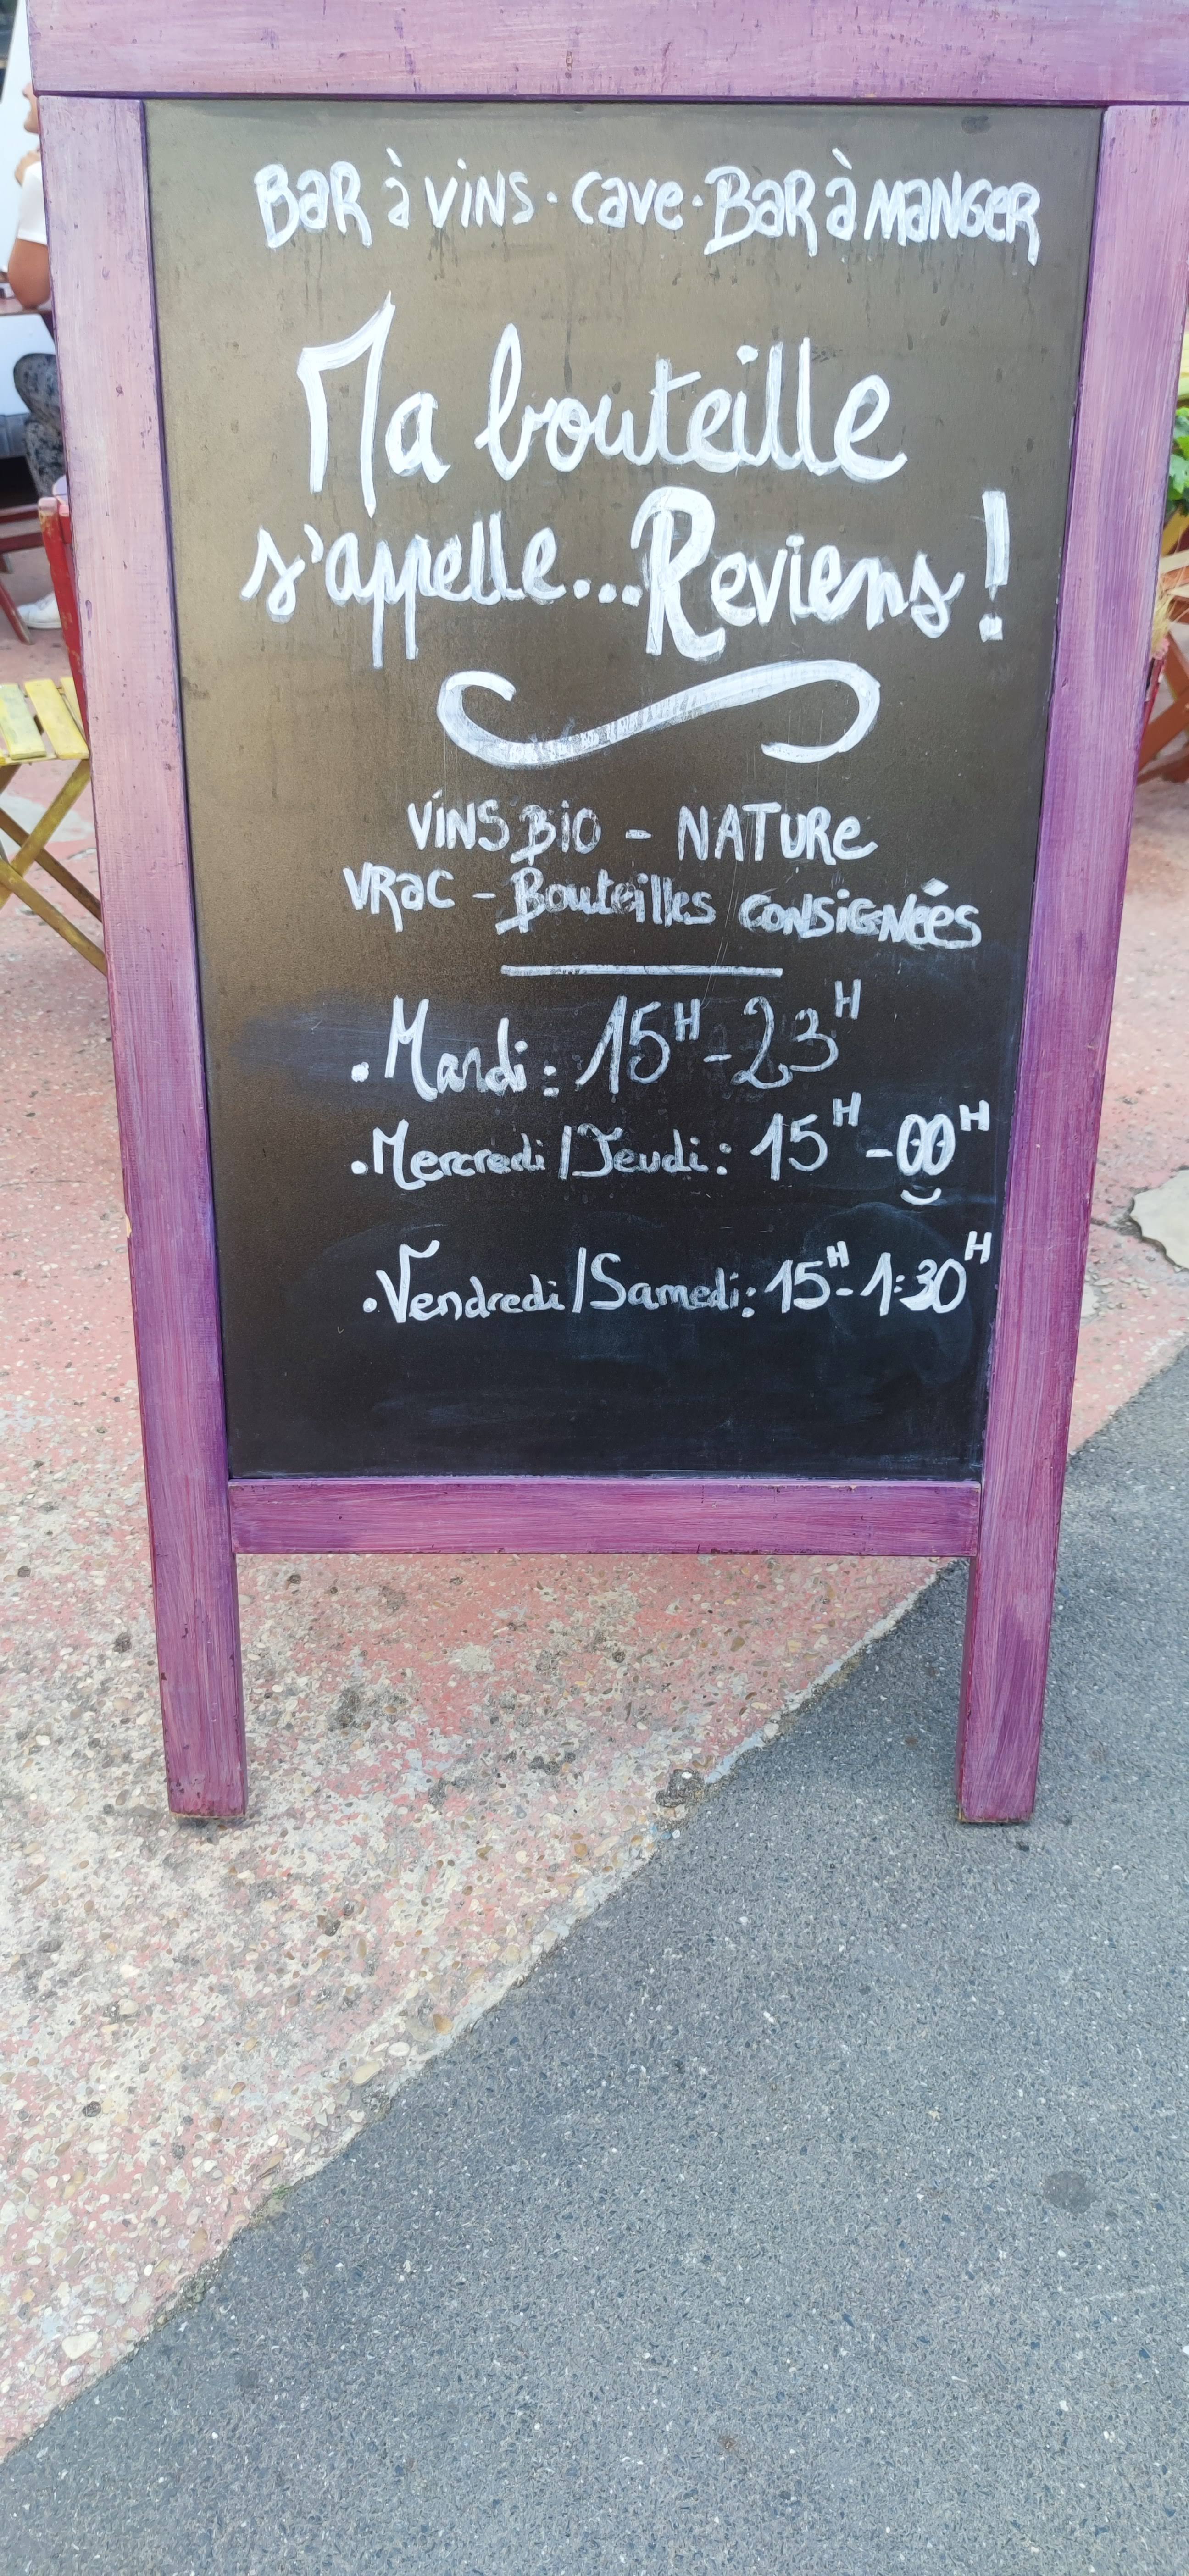 BAR à VINS · CAVE · BAR à MANGER
Ma bouteille
s'appelle...Reviens!
VINS BIO - NATURE
VRAC - Bouteilles CONSIGNÉES
. Mardi : 15H - 23H
. Mercredi / Jeudi : 15H - 00H
. Vendredi / Samedi : 15H - 1:30H